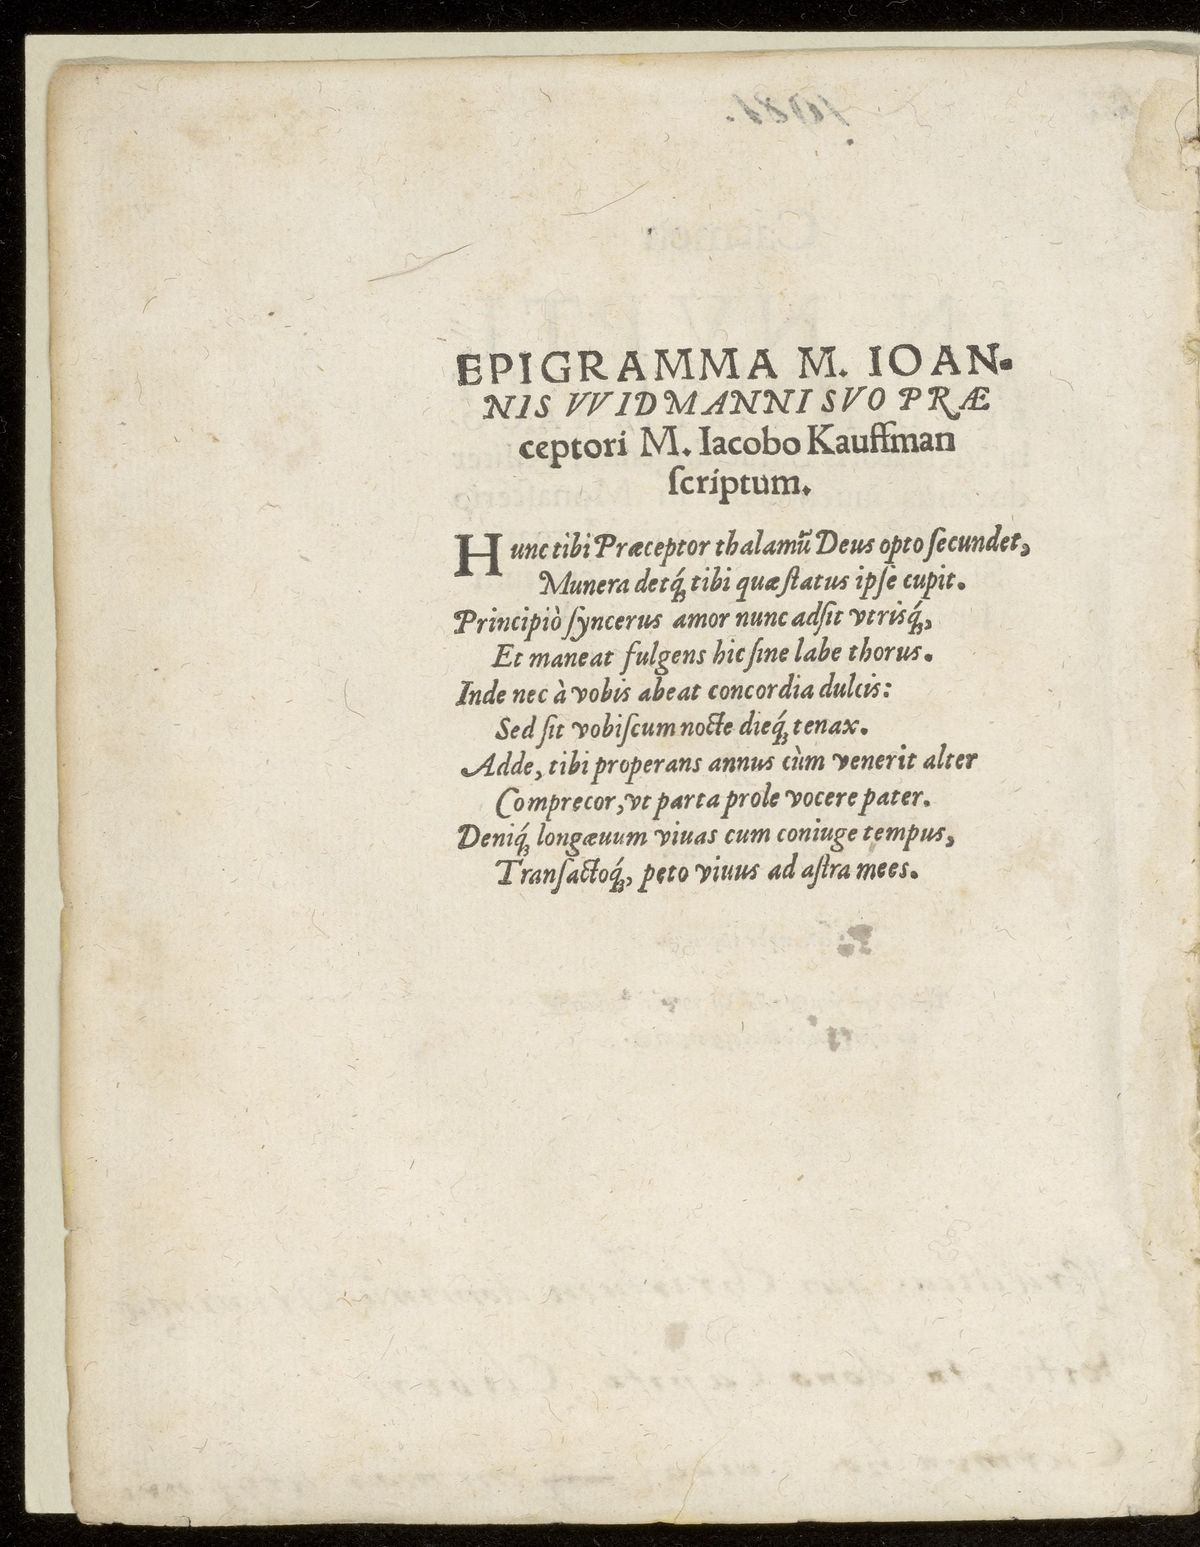 EPIGRAMMA M. IOAN-
NIS VVIDMANNI SVO PRÆ
ceptori M. Iacobo Kauffman
ſcriptum.
Hunc tibi Præceptor thalamũ Deus opto ſecundet,
Munera detq́ꝫ tibi quæ ſtatus ipſe cupit.
Principiò ſyncerus amor nunc adſit vtrisq́ꝫ,
Et maneat fulgens hic ſine labe thorus.
Inde nec à vobis abeat concordia dulcis:
Sed ſit vobiſcum nocte dieq́ꝫ tenax.
Adde, tibi properans annus cùm venerit alter
Comprecor, vt parta prole vocere pater.
Deniq́ꝫ longæuum viuas cum coniuge tempus,
Tranſactoq́ꝫ, peto viuus ad aſtra mees.